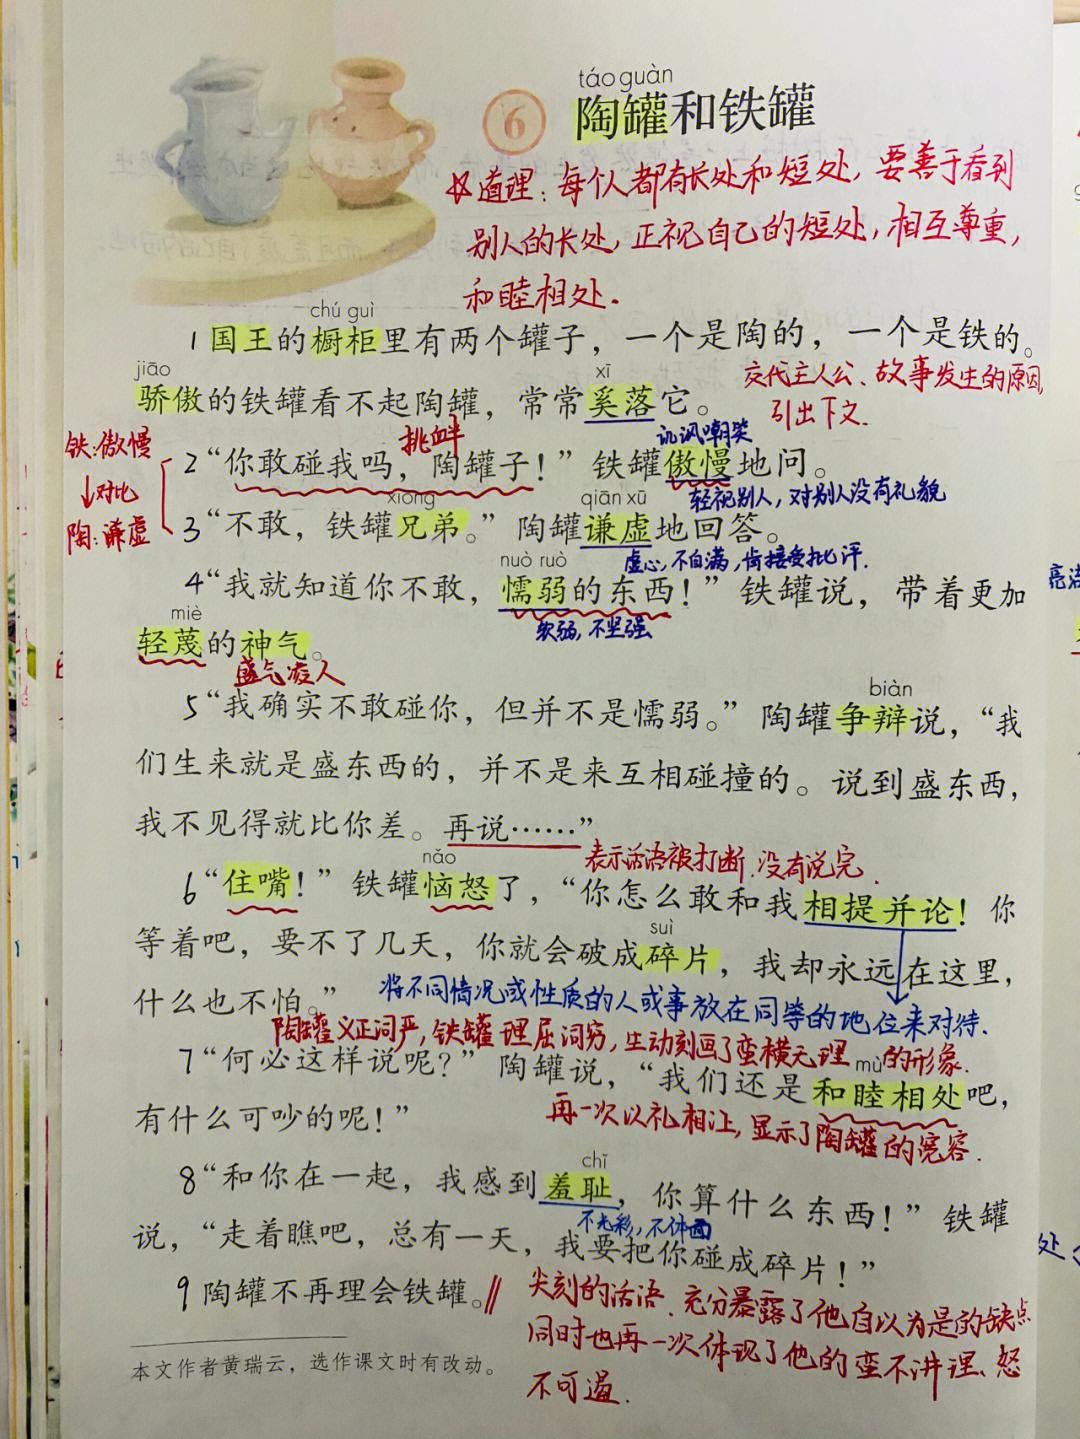 táo guàn
6 陶罐和铁罐
☆道理：每个人都有长处和短处，要善于看到
别人的长处，正视自己的短处，相互尊重，
和睦相处.
chú guì
1 国王的橱柜里有两个罐子，一个是陶的，一个是铁的。
jiāo xī
骄傲的铁罐看不起陶罐，常常奚落它。
交代主人公、故事发生的原因,
引出下文.
讥讽嘲笑
挑衅
铁:傲慢
↓对比
陶:谦虚
2 “你敢碰我吗，陶罐子！”铁罐傲慢地问。
轻视别人，对别人没有礼貌
xiōng qiān xū
3 “不敢，铁罐兄弟。”陶罐谦虚地回答。
虚心，不自满，肯接受批评.
nuò ruò
4 “我就知道你不敢，懦弱的东西！”铁罐说，带着更加
软弱，不坚强
miè
轻蔑的神气。
盛气凌人
biàn
5 “我确实不敢碰你，但并不是懦弱。”陶罐争辩说，“我
们生来就是盛东西的，并不是来互相碰撞的。说到盛东西，
我不见得就比你差。再说……”
表示话语被打断.没有说完.
nǎo
6 “住嘴！”铁罐恼怒了，“你怎么敢和我相提并论！你
suì
等着吧，要不了几天，你就会破成碎片，我却永远在这里，
什么也不怕。”
将不同情况或性质的人或事放在同等的地位来对待.
陶罐义正词严，铁罐理屈词穷，生动刻画了蛮横无理的形象.
mù
7 “何必这样说呢？”陶罐说，“我们还是和睦相处吧，
有什么可吵的呢！”
再一次以礼相让，显示了陶罐的宽容.
chǐ
8 “和你在一起，我感到羞耻，你算什么东西！”铁罐
不光彩，不体面
说，“走着瞧吧，总有一天，我要把你碰成碎片！”
9 陶罐不再理会铁罐。
尖刻的话语、充分暴露了他自以为是的缺点
同时也再一次体现了他的蛮不讲理、怒
不可遏.
本文作者黄瑞云，选作课文时有改动。
处